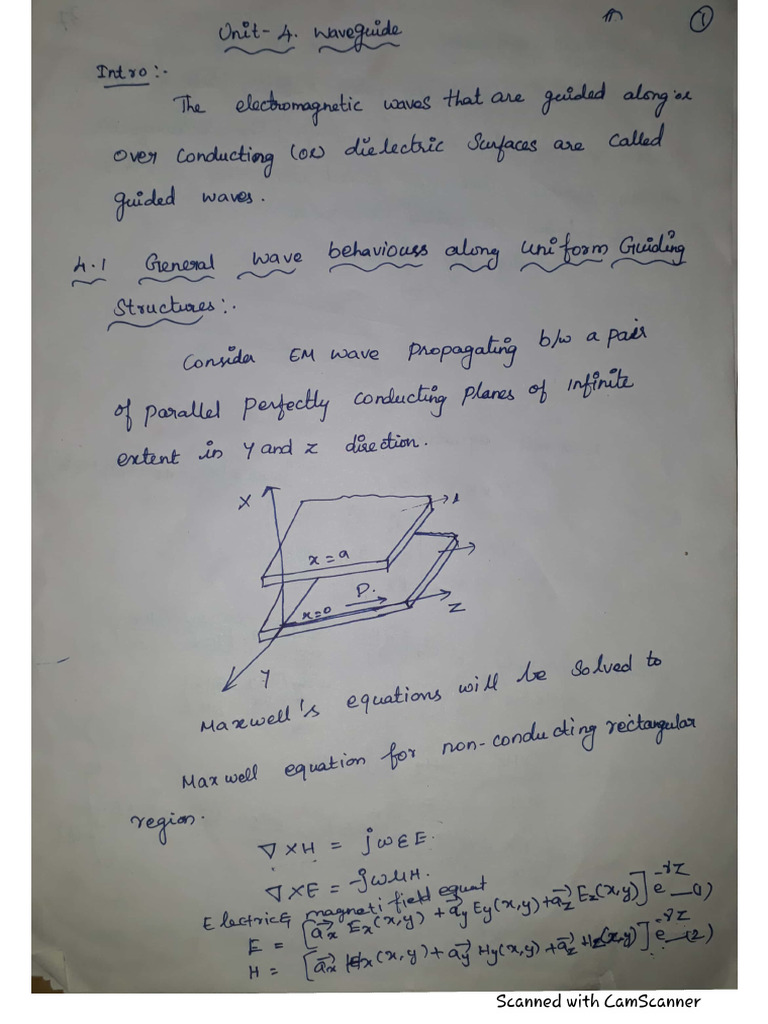 ①
Unit- 4. Waveguide
Intro:-
The electromagnetic waves that are guided along or
over conducting (or) dielectric surfaces are called
guided waves.
4.1 General wave behaviours along uniform Guiding
Structures:-
Consider EM wave propagating b/w a pair
of parallel perfectly conducting planes of infinite
extent in y and z direction.
X
x = a
P.
x=0
Z
Y
Maxwell's equations will be solved to
Maxwell equation for non-conducting rectangular
region.
∇ × H = jωε E.
∇ × E = -jωμH.
Electric & magneti field equat
E = [a⃗x Ex(x,y) + a⃗y Ey(x,y) + a⃗z Ez(x,y)] e^-γz —(1)
H = [a⃗x Hx(x,y) + a⃗y Hy(x,y) + a⃗z Hz(x,y)] e^-γz —(2)
Scanned with CamScanner